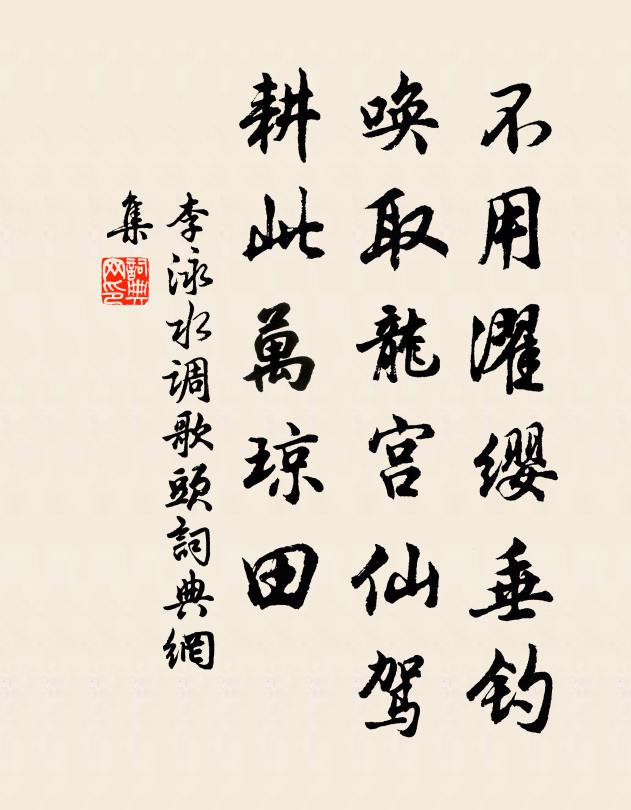 不用濯缨垂钓
唤取龍宫仙驾
耕此萬琼田
李泳水调歌頭詞典網
集
詞典
网印